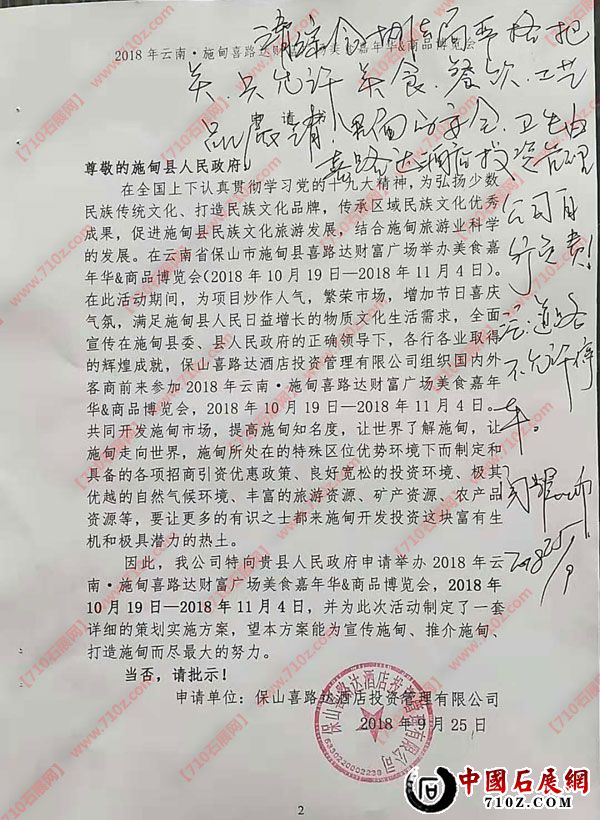 2018年云南·施甸喜路达财富广场美食嘉年华&商品博览会
尊敬的施甸县人民政府:
在全国上下认真贯彻学习党的十九大精神,为弘扬少数
民族传统文化、打造民族文化品牌,传承区域民族文化优秀
成果,促进施甸县民族文化旅游发展,结合施甸旅游业科学
的发展。在云南省保山市施甸县喜路达财富广场举办美食嘉
年华&商品博览会(2018年10月19日—2018年11月4日)。
在此活动期间,为项目炒作人气,繁荣市场,增加节日喜庆
气氛,满足施甸县人民日益增长的物质文化生活需求,全面
宣传在施甸县委、县人民政府的正确领导下,各行各业取得
的辉煌成就,保山喜路达酒店投资管理有限公司组织国内外
客商前来参加2018年云南·施甸喜路达财富广场美食嘉年
华&商品博览会,2018年10月19日—2018年11月4日。
共同开发施甸市场,提高施甸知名度,让世界了解施甸,让
施甸走向世界,施甸所处在的特殊区位优势环境下而制定和
具备的各项招商引资优惠政策、良好宽松的投资环境、极其
优越的自然气候环境、丰富的旅游资源、矿产资源、农产品
资源等,要让更多的有识之士都来施甸开发投资这块富有生
机和极具潜力的热土。
因此,我公司特向贵县人民政府申请举办2018年云
南·施甸喜路达财富广场美食嘉年华&商品博览会,2018年
10月19日—2018年11月4日,并为此次活动制定了一套
详细的策划实施方案,望本方案能为宣传施甸、推介施甸、
打造施甸而尽最大的努力。
当否,请批示!
申请单位:保山喜路达酒店投资管理有限公司
2018年9月25日
保山喜路达酒店投资管理有限公司
5330220002238
2
严格把
关.只允许美食.餐饮.工艺
品
安全.卫生由
喜路达酒店投资管理
公司自
行负责!
注:道路
不允许停
车。
【710石展网】
www.710z.com
中國石展網
710Z.COM